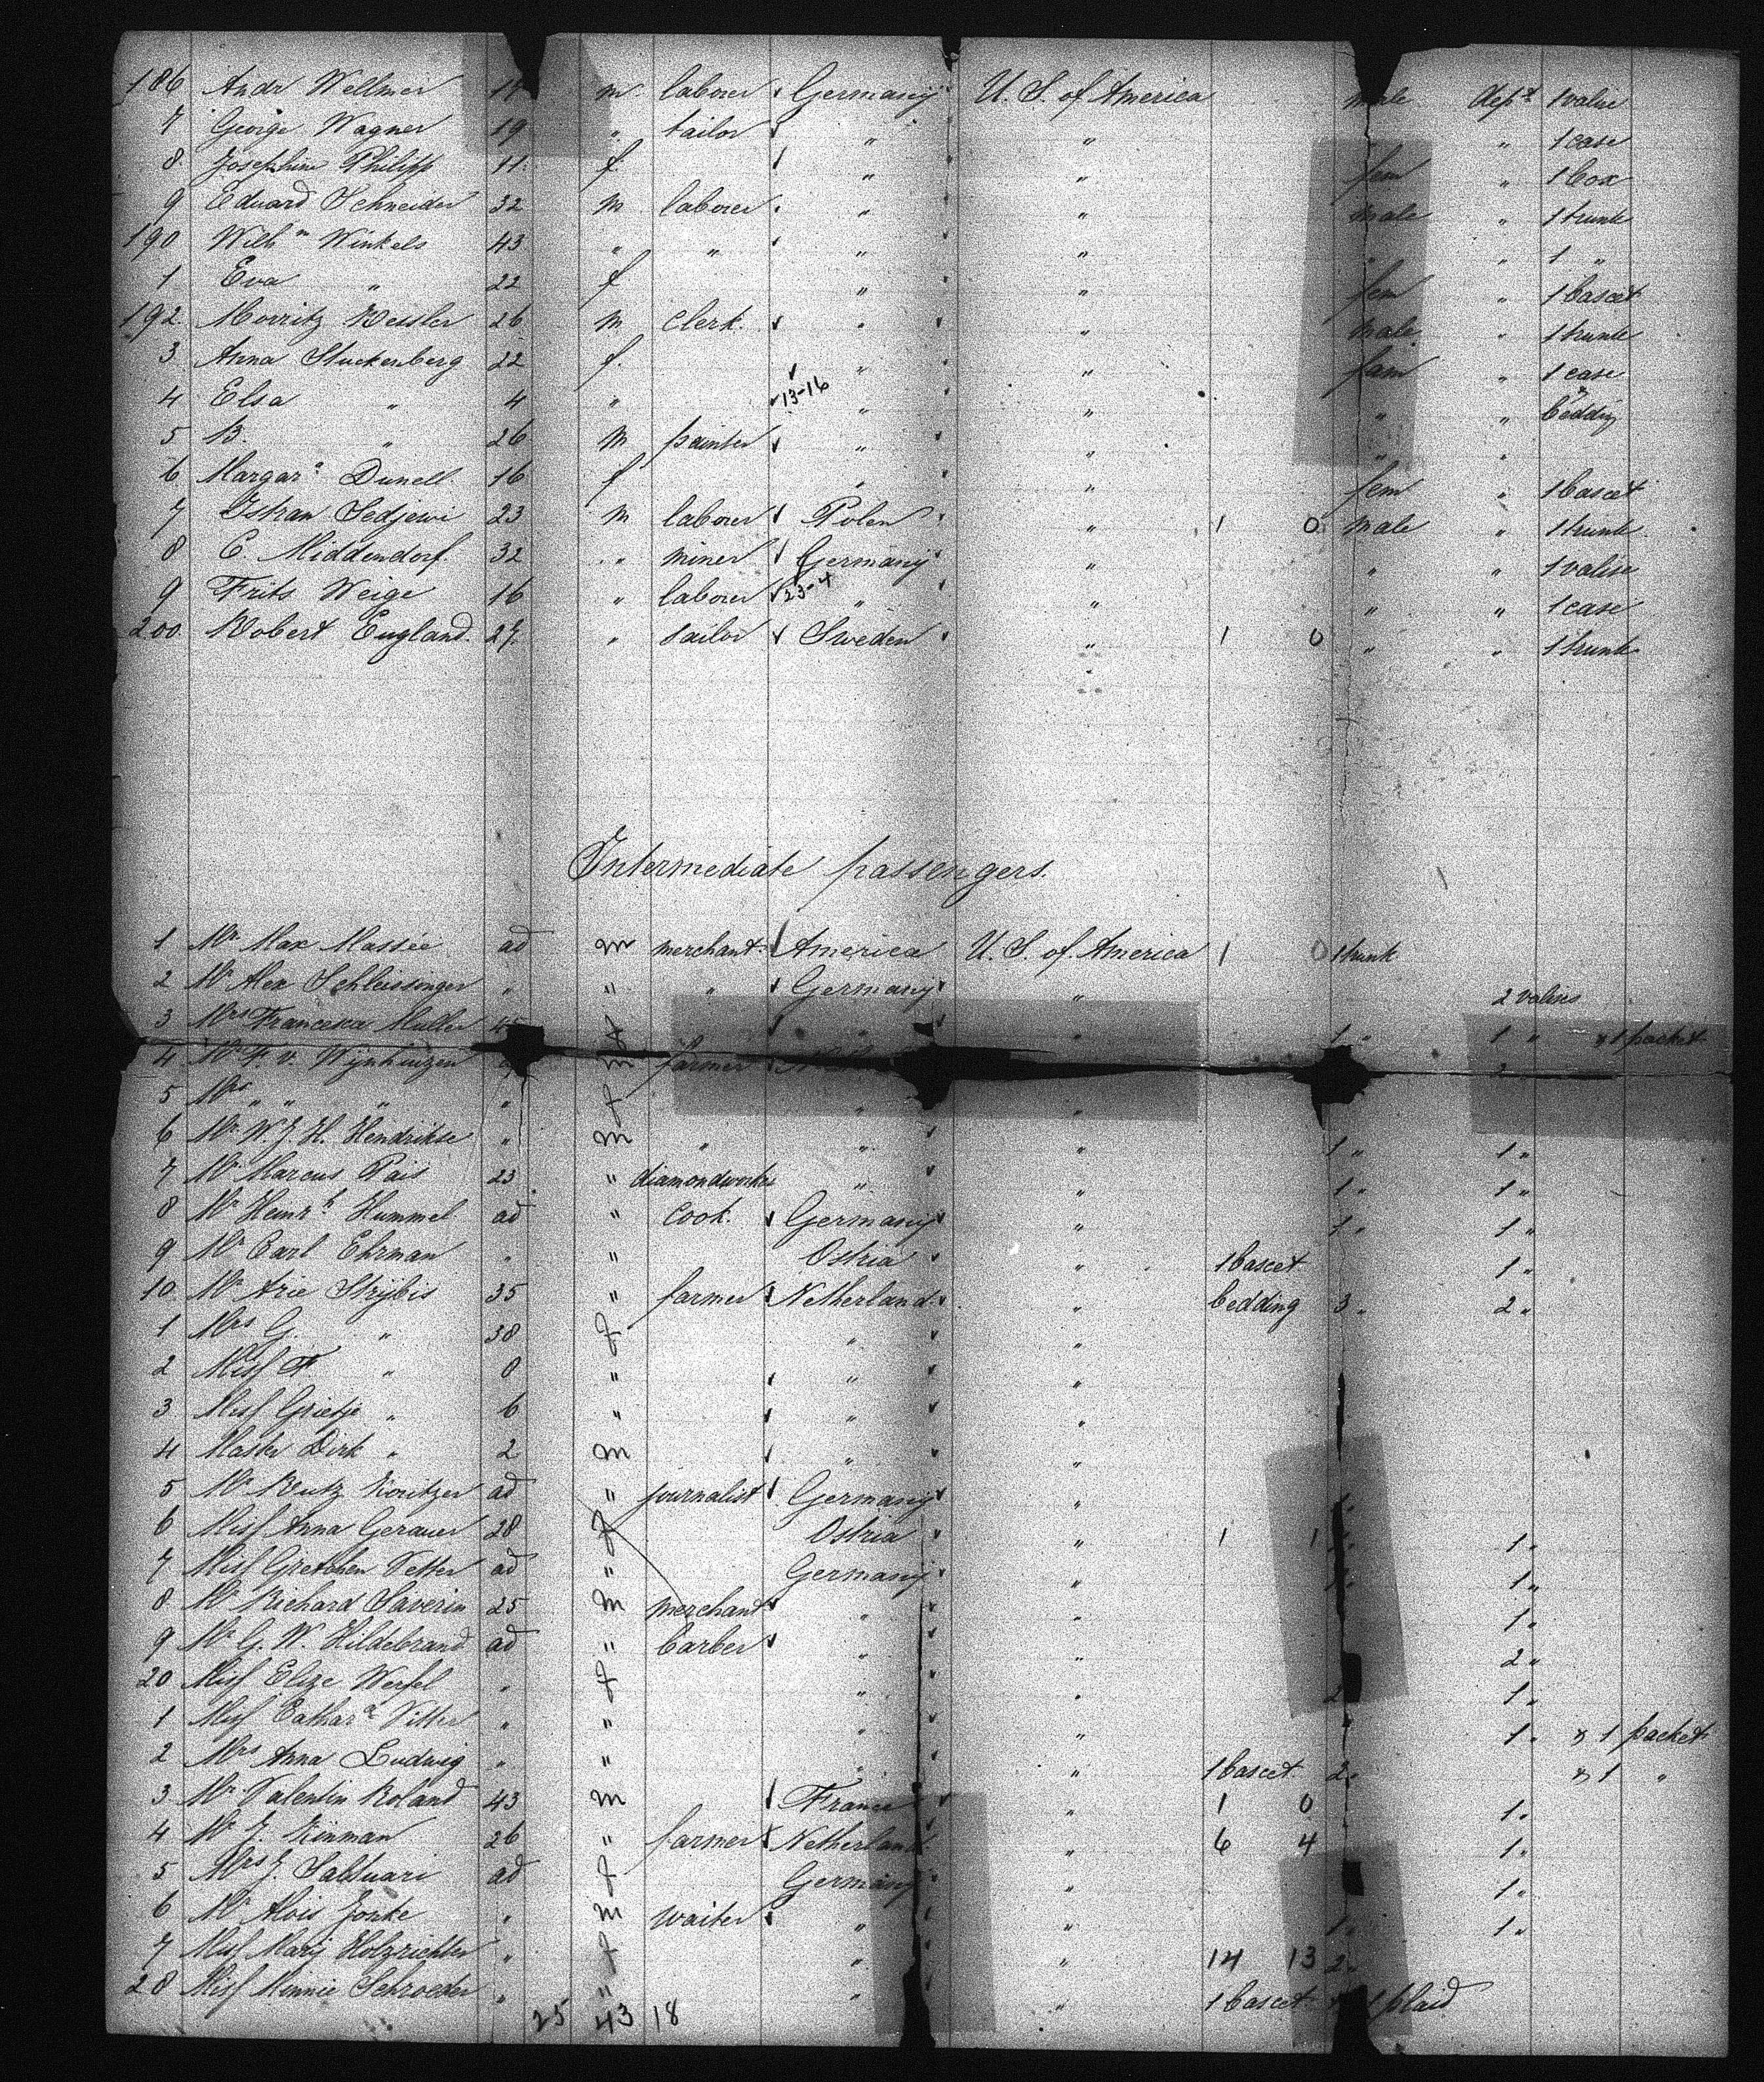 186 Andr Wellmer m laborer Germany U. S. of America male dep.t 1 valise
7 George Wagner 19 " tailor " " " " 1 case
8 Josephine Philipp 11 f. " " fem " 1 box
9 Eduard Schneider 32 m laborer " " male " 1 trunk
190 Wilh.m Winkels 43 " " " " " " 1 "
1 Eva " 22 f " " fem " 1 bascet
192. Morritz Kessler 26 m clerk. " " male " 1 trunk
3 Anna Stuckenberg 22 f. " " fam " 1 case
4 Elsa " 4 " 13-16 " " " " & bedding
5 B. " 26 m painter " " " "
6 Margar.a Dunell. 16 f " " fem " 1 bascet
7 Istran Sedjewi 23 m laborer Polen " 1 0 male " 1 trunk
8 C. Middendorf. 32 " miner Germany " " " 1 valise
9 Frits Weige 16 " laborer 23-4 " " " " 1 case
200. Robert England. 27. " sailor Sweden " 1 0 " " 1 trunk
Intermediate passengers.
1 Mr. Max Massée ad m merchant. America U. S. of America 1 0 1 trunk
2 Mr Alex Schleissinger " " " Germany " 2 valises
3 Mrs Francesca Muller 45 f " " 1 " 1 " & 1 packet
4 Mr F. v. Wijnhuizen m farmer
5 Mrs " " " " f " "
6 Mr W. J. H. Hendrikse " m " " 1 " 1 "
7 Mr Marcus Pais 23 " diamondworker " " 1 " 1 "
8 Mr Heinr.h Hummel ad " cook. Germany " 1 " 1 "
9 Mr Carl Ehrman " " Ostria " 1 bascet 1 "
10 Mr Arie Strijbis 35 " farmer Netherland. " bedding 3 " 2 "
1 Mrs G. " 38 f " "
2 Miss F. " 8 " " "
3 Miss Grietje " 6 " " "
4 Master Dirk " 2 m " "
5 Mr Rutz Koritzer ad " journalist Germany " 1 "
6 Miss Anna Gerauer 28 f Ostria " 1 1 1 "
7 Miss Gretchen Vetter ad " Germany " 1 "
8 Mr Richard Saverin 25 m merchant " " 1 "
9 Mr G. W. Hildebrand ad " barber " " 2 "
20 Miss Elize Werfel " f " " 2 1 "
1 Miss Cathar.a Vitter " " " 1 " & 1 packet
2 Mrs Anna Ludwig " " " " 1 bascet 2 " & 1 "
3 Mr. Valentin Roland 43 m France " 1 0 1 "
4 Mr J. Kinman 26 " farmer Netherland " 6 4 1 "
5 Mrs J. Salsuari ad f Germany " 1 "
6 Mr Alois Jonke " m waiter " " 1 " 1 "
7 Miss Marij Holzrichter " f " " 14 13 2 "
28 Miss Minnie Schroeder " " " " 1 bascet & 1 plaid
25 43 18